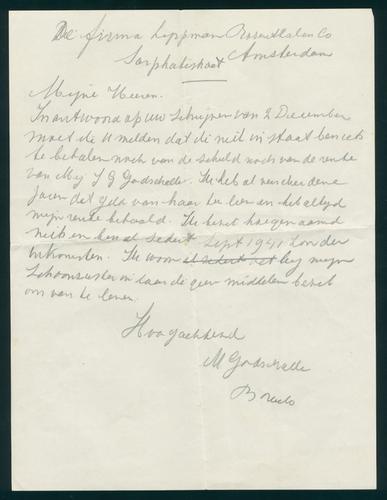 De firma Lippman Rosenthal en Co
Sarphatistraat Amsterdam
Mijne Heeren.
In antwoord op uw schrijven van 2 December
moet ik U melden dat ik niet in staat ben iets
te betalen noch van de schuld noch van de rente
van Mej J G Godschalk. Ik heb al verscheidene
jaren dat geld van haar te leen en heb altyd
mijn rente betaald. Ik bezit hoegenaamd
niets en ben al sedert Sept 1941 zonder
inkomsten. Ik woon al sedert bij mijn
Schoonzuster in daar ik geen middelen bezit
om van te leven.
Hoogachtend
M Godschalk
Borculo